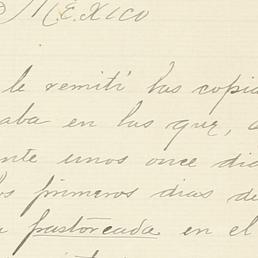 MEXICO
le remití las copia
aba en las que, a
nte unos once dia
os primeros dias de
a pastoreada en el